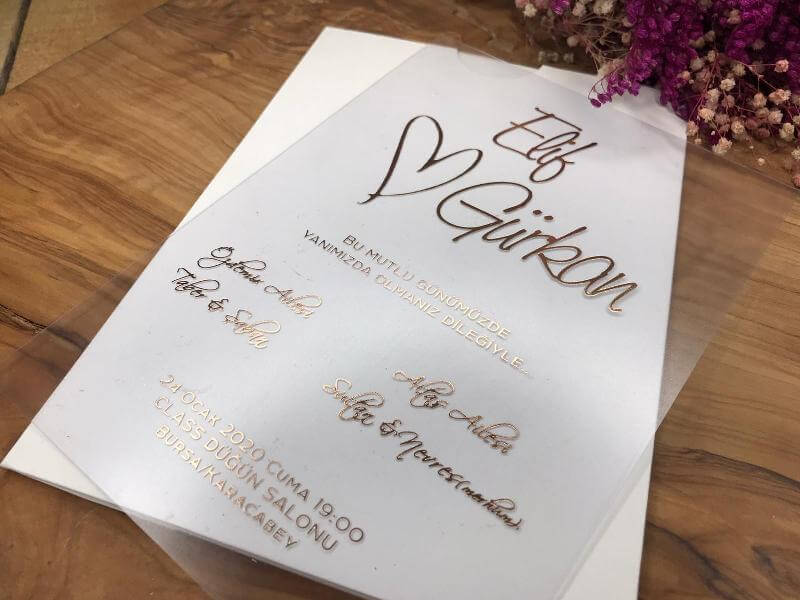 Elif
Gürkan
BU MUTLU GÜNÜMÜZDE
YANIMIZDA OLMANIZ DİLEĞİYLE...
Ailesi
&
Ailesi
& Nevres (merhum)
24 OCAK 2020 CUMA 19:00
CLASS DÜĞÜN SALONU
BURSA/KARACABEY